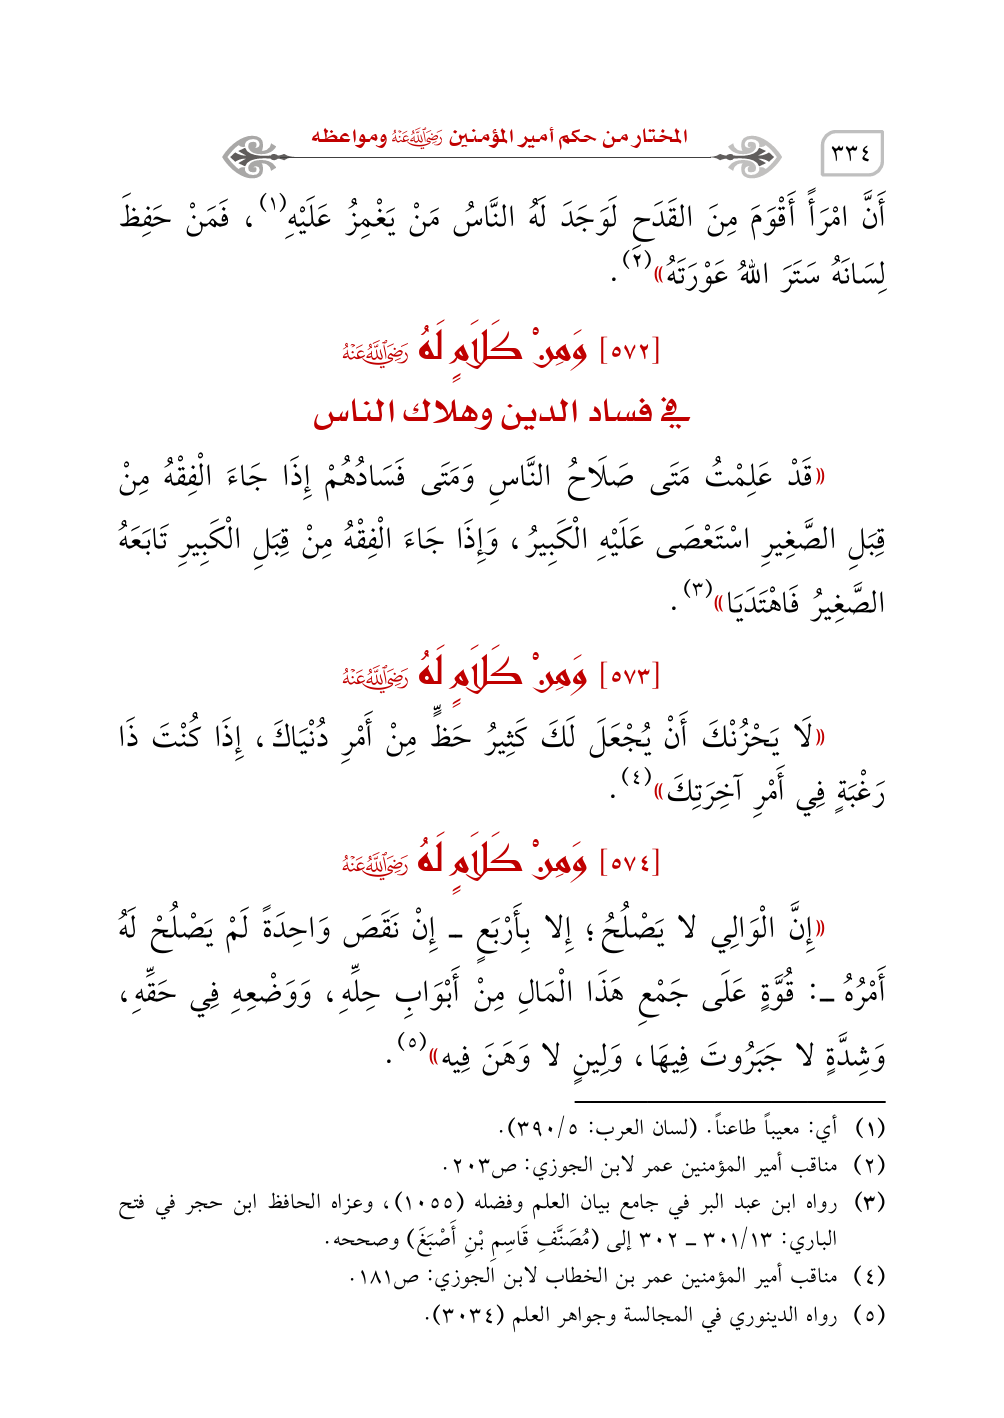 ٣٣٤
المختار من حكم أمير المؤمنين رَضِيَ اللَّهُ عَنْهُ ومواعظه
أَنَّ امْرَأً أَقْوَمَ مِنَ القَدَحِ لَوَجَدَ لَهُ النَّاسُ مَنْ يَغْمِزُ عَلَيْهِ(١)، فَمَنْ حَفِظَ
لِسَانَهُ سَتَرَ اللهُ عَوْرَتَهُ»(٢).
[٥٧٢] وَمِنْ كَلَامٍ لَهُ رَضِيَ اللَّهُ عَنْهُ
في فساد الدين وهلاك الناس
«قَدْ عَلِمْتُ مَتَى صَلَاحُ النَّاسِ وَمَتَى فَسَادُهُمْ إِذَا جَاءَ الْفِقْهُ مِنْ
قِبَلِ الصَّغِيرِ اسْتَعْصَى عَلَيْهِ الْكَبِيرُ، وَإِذَا جَاءَ الْفِقْهُ مِنْ قِبَلِ الْكَبِيرِ تَابَعَهُ
الصَّغِيرُ فَاهْتَدَيَا»(٣).
[٥٧٣] وَمِنْ كَلَامٍ لَهُ رَضِيَ اللَّهُ عَنْهُ
«لَا يَحْزُنْكَ أَنْ يُجْعَلَ لَكَ كَثِيرُ حَظٍّ مِنْ أَمْرِ دُنْيَاكَ، إِذَا كُنْتَ ذَا
رَغْبَةٍ فِي أَمْرِ آخِرَتِكَ»(٤).
[٥٧٤] وَمِنْ كَلَامٍ لَهُ رَضِيَ اللَّهُ عَنْهُ
«إِنَّ الْوَالِي لا يَصْلُحُ؛ إِلا بِأَرْبَعٍ ـ إِنْ نَقَصَ وَاحِدَةً لَمْ يَصْلُحْ لَهُ
أَمْرُهُ ـ: قُوَّةٍ عَلَى جَمْعِ هَذَا الْمَالِ مِنْ أَبْوَابِ حِلِّهِ، وَوَضْعِهِ فِي حَقِّهِ،
وَشِدَّةٍ لا جَبَرُوتَ فِيهَا، وَلِينٍ لا وَهَنَ فِيه»(٥).
(١) أي: معيباً طاعناً. (لسان العرب: ٣٩٠/٥).
(٢) مناقب أمير المؤمنين عمر لابن الجوزي: ص٢٠٣.
(٣) رواه ابن عبد البر في جامع بيان العلم وفضله (١٠٥٥)، وعزاه الحافظ ابن حجر في فتح
الباري: ٣٠١/١٣ ـ ٣٠٢ إلى (مُصَنَّفِ قَاسِمِ بْنِ أَصْبَغَ) وصححه.
(٤) مناقب أمير المؤمنين عمر بن الخطاب لابن الجوزي: ص١٨١.
(٥) رواه الدينوري في المجالسة وجواهر العلم (٣٠٣٤).